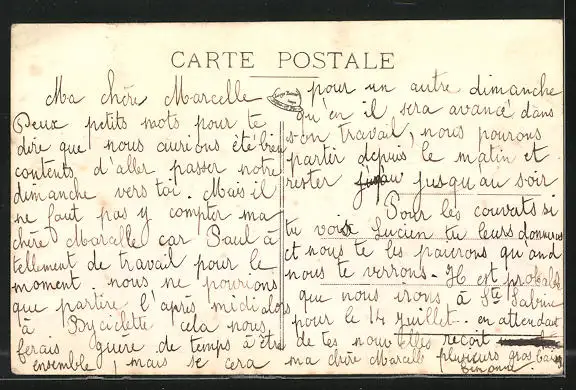 CARTE POSTALE
Ma chère Marcelle
Deux petits mots pour te
dire que nous aurions été bien
contents d'aller passer notre
dimanche vers toi. Mais il
ne faut pas y compter ma
chère Marcelle car Paul à
tellement de travail pour le
moment. nous ne pourions
que partire l'après midi alors
à Byciclette cela nous
ferais guère de temps à être
ensemble, mais se cera
pour un autre dimanche
qu'en il sera avancé dans
son travail, nous pourons
partir depuis le matin et
rester jusqu'au soir
Pour les couvats si
tu vois Lucien tu leurs donneras
et nous te les pairons qu'and
nous te verrons. Il est probable
que nous irons à Ste Sabine
pour le 14 Juillet. en attendant
de tes nouvelles reçoit
ma chère Marcelle plusieurs gros baisers